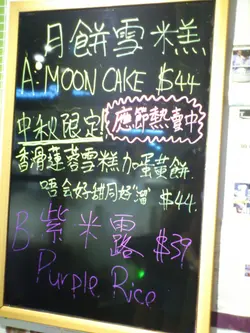 月餅雪糕
A: MOON CAKE $44
中秋限定! 應節熱賣中
香滑蓮蓉雪糕加蛋黃餅.
唔会好甜同好"溜" $44.
B. 紫米露 $39
Purple Rice